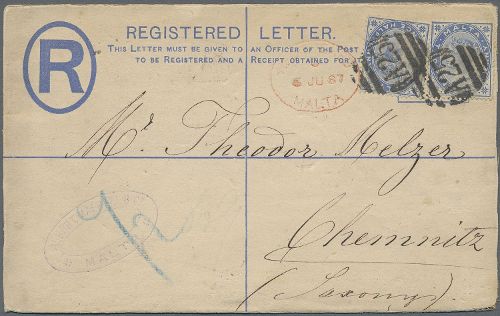 REGISTERED LETTER.
THIS LETTER MUST BE GIVEN TO AN OFFICER OF THE POST
TO BE REGISTERED AND A RECEIPT OBTAINED FOR
R
MALTA
A25
A25
JU 87
MALTA
Mr. Theodor Melzer
Chemnitz
(Saxony)
MALTA